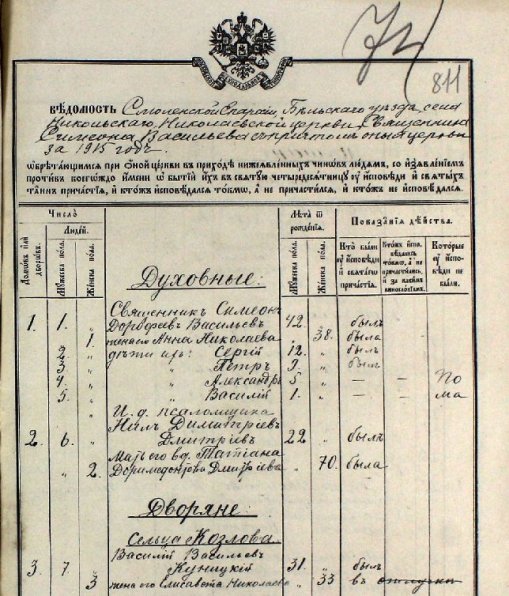 74
811
ВѢДОМОСТЬ Смоленской Епархіи, Бѣльскаго уѣзда села
Никольскаго, Николаевской церкви Священника
Симеона Васильева съ причтомъ оныя церкви
за 1915 годъ.
ѠБРѢТАЮЩИМСЯ ПРИ ОНОЙ ЦЕРКВИ ВЪ ПРИХОДѢ НИЖЕЯВЛЕННЫХЪ ЧИНѠВЪ ЛЮДЯМЪ, СО ИЗЪЯВЛЕНІЕМЪ
ПРОТИВЪ КОЕГѠЖДО ИМЕНИ Ѡ БЫТІИ ИХЪ ВЪ СВЯТУЮ ЧЕТЫРЕДЕСЯТНИЦУ У ИСПОВѢДИ И СВЯТЫХЪ
ТАИНЪ ПРИЧАСТІЯ, И КТОЖЪ ИСПОВѢДАЛСЯ ТОКМѠ, А НЕ ПРИЧАСТИЛСЯ, И КТОЖЪ НЕ ИСПОВѢДАЛСЯ.
Число Лѣта ѿ рожденія. Показанія дѣйства.
Домовъ или дворовъ. Людей. Мужеска пола. Женска пола. Мужеска пола. Женска пола. Кто были у исповѣди и святаго причастія. Ктожъ исповѣдались токмѡ, а не причастились, и за какимъ виновѡсловіемъ. Которые у исповѣди не были.
Духовные:
Священникъ Симеонъ
1. 1. „ Дороѳеевъ Васильевъ 42. „ былъ
„ 1. жена его Анна Николаева „ 38. была
2. „ дѣти ихъ: Сергій 12. „ былъ
3 „ „ Петръ 9. „ былъ
4. „ „ Александръ 5 „ — — По
5. „ „ Василій 1. „ — — ма
И. д. псаломщика
Нилъ Димитріевъ
2. 6. „ Дмитріевъ 22 „ былъ
мать его вд. Татіана
„ 2. Доримедонтова Дмитріева „ 70. была
Дворяне:
Сельца Козлова
Василій Васильевъ
3. 7. „ Куницкій 31. „ былъ
„ 3 жена его Елисавета Николаева „ 33 въ отлучкѣ